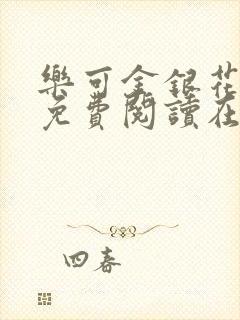 樂可金銀花
免費閱讀在
四春